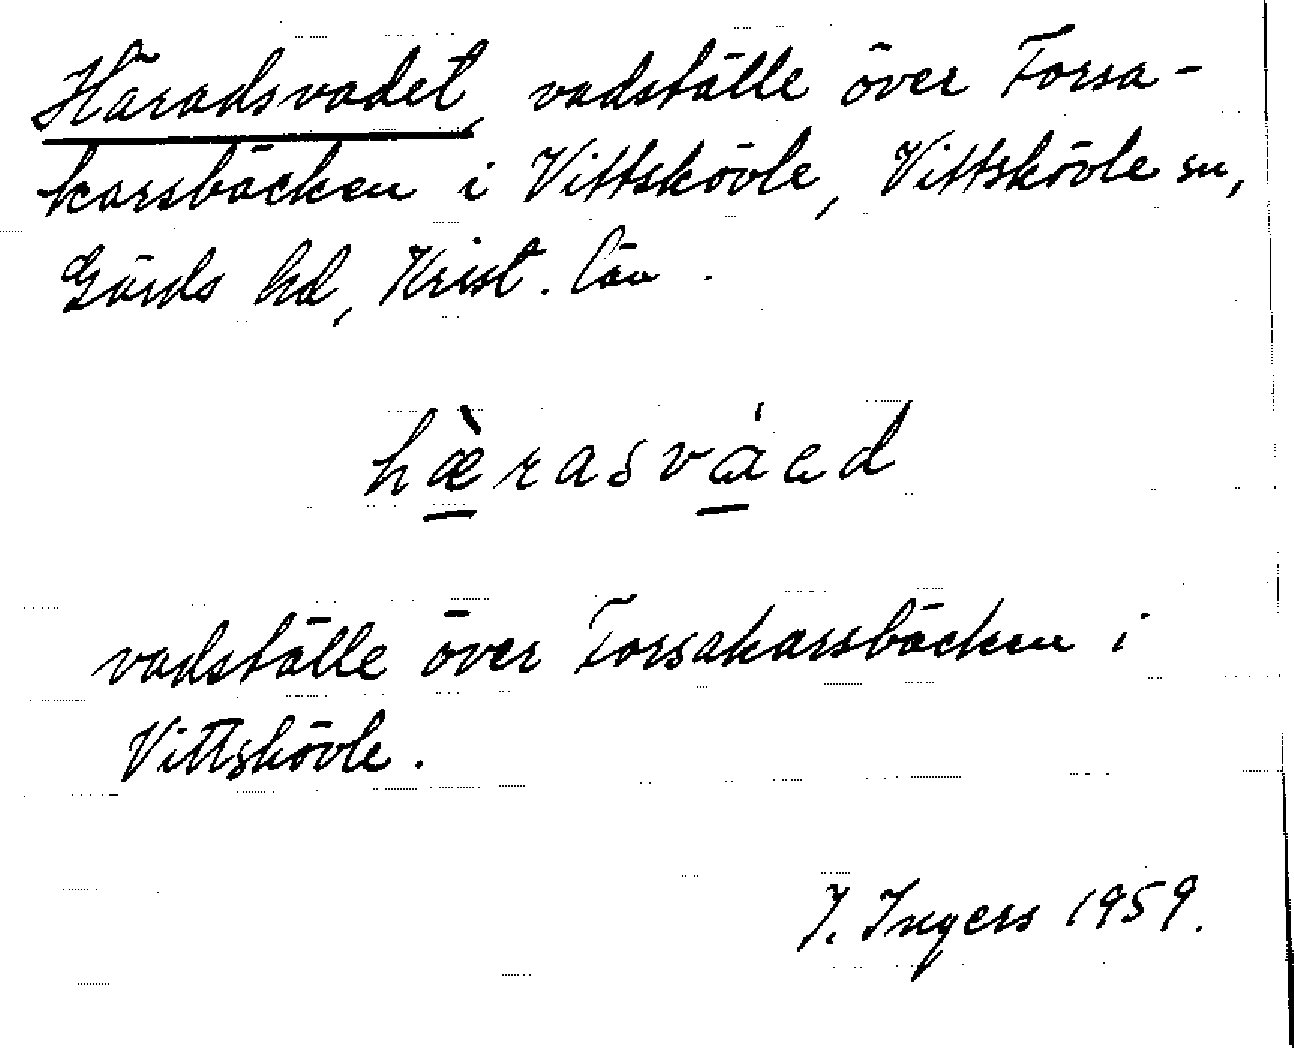 Häradsvadet, vadställe över Forsa-
karsbäcken i Vittskövle, Vittskövle sn,
Gärds hd, Krist. län.
hæ̀rasvá͕ɑd
vadställe över Forsakarsbäcken i
Vittskövle.
I. Ingers 1959.